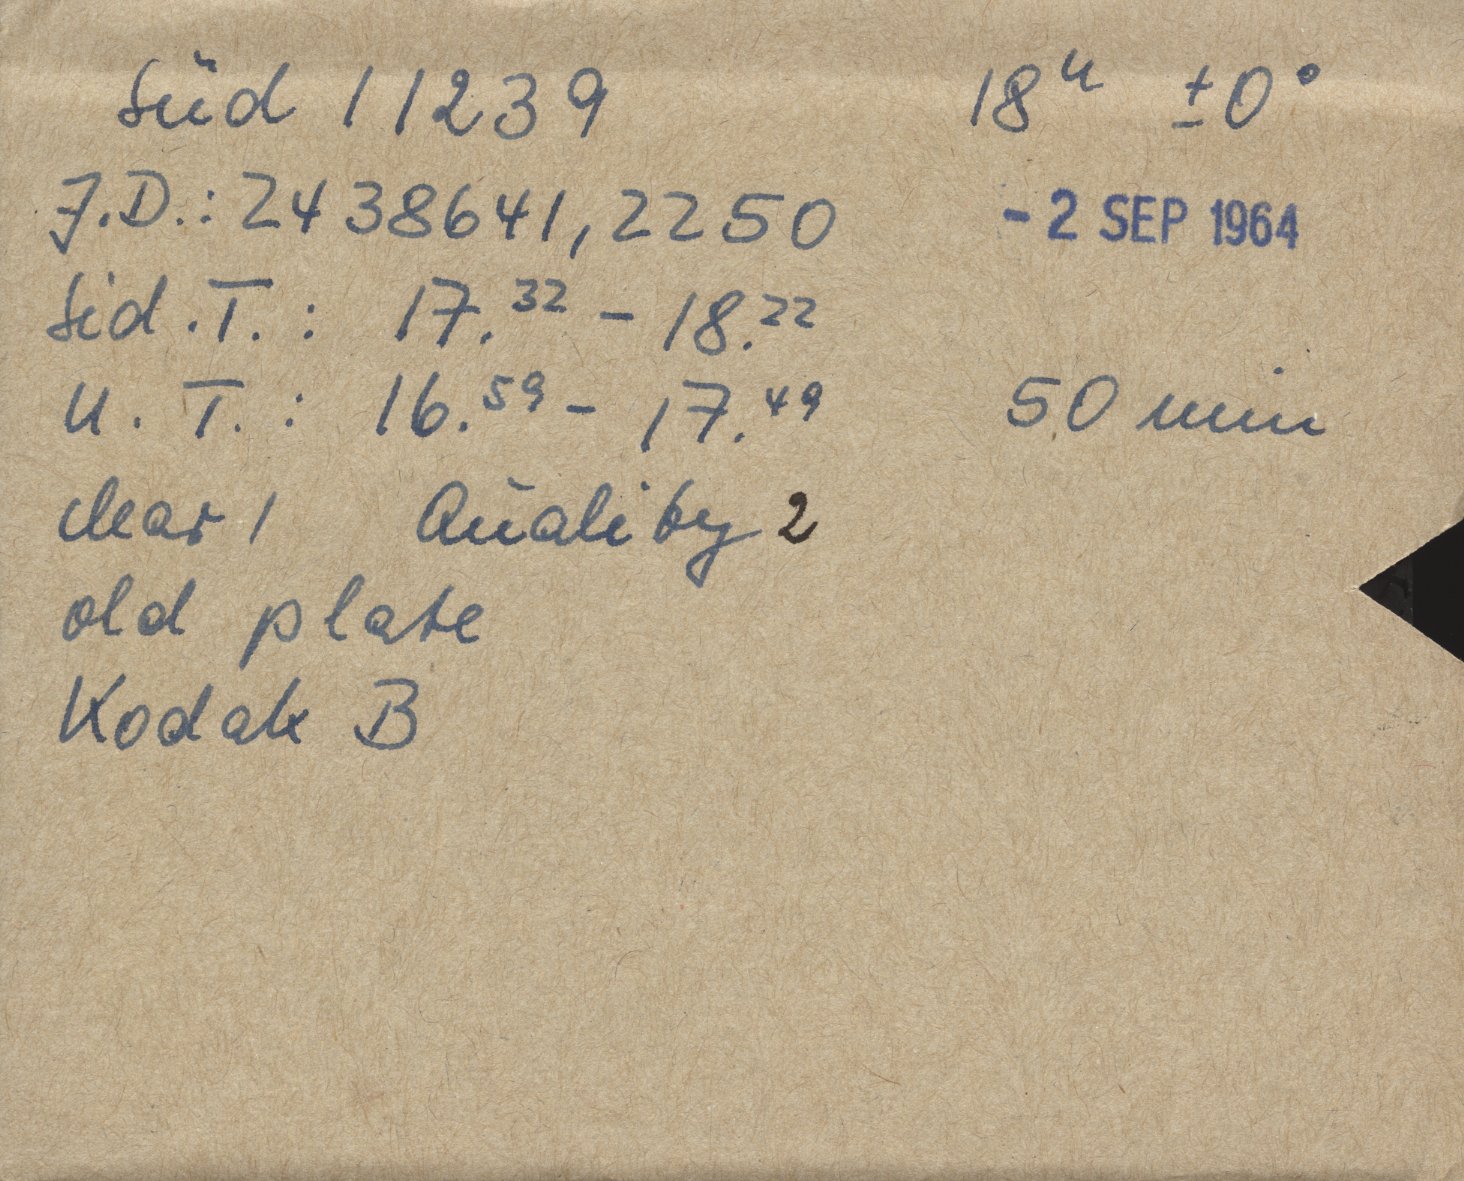 Süd 11239 18ʰ ±0°
J.D.: 2438641,2250 - 2 SEP 1964
Sid.T.: 17.³² – 18.²²
U.T.: 16.⁵⁹ – 17.⁴⁹ 50 min
clear 1 Quality 2
old plate
Kodak B